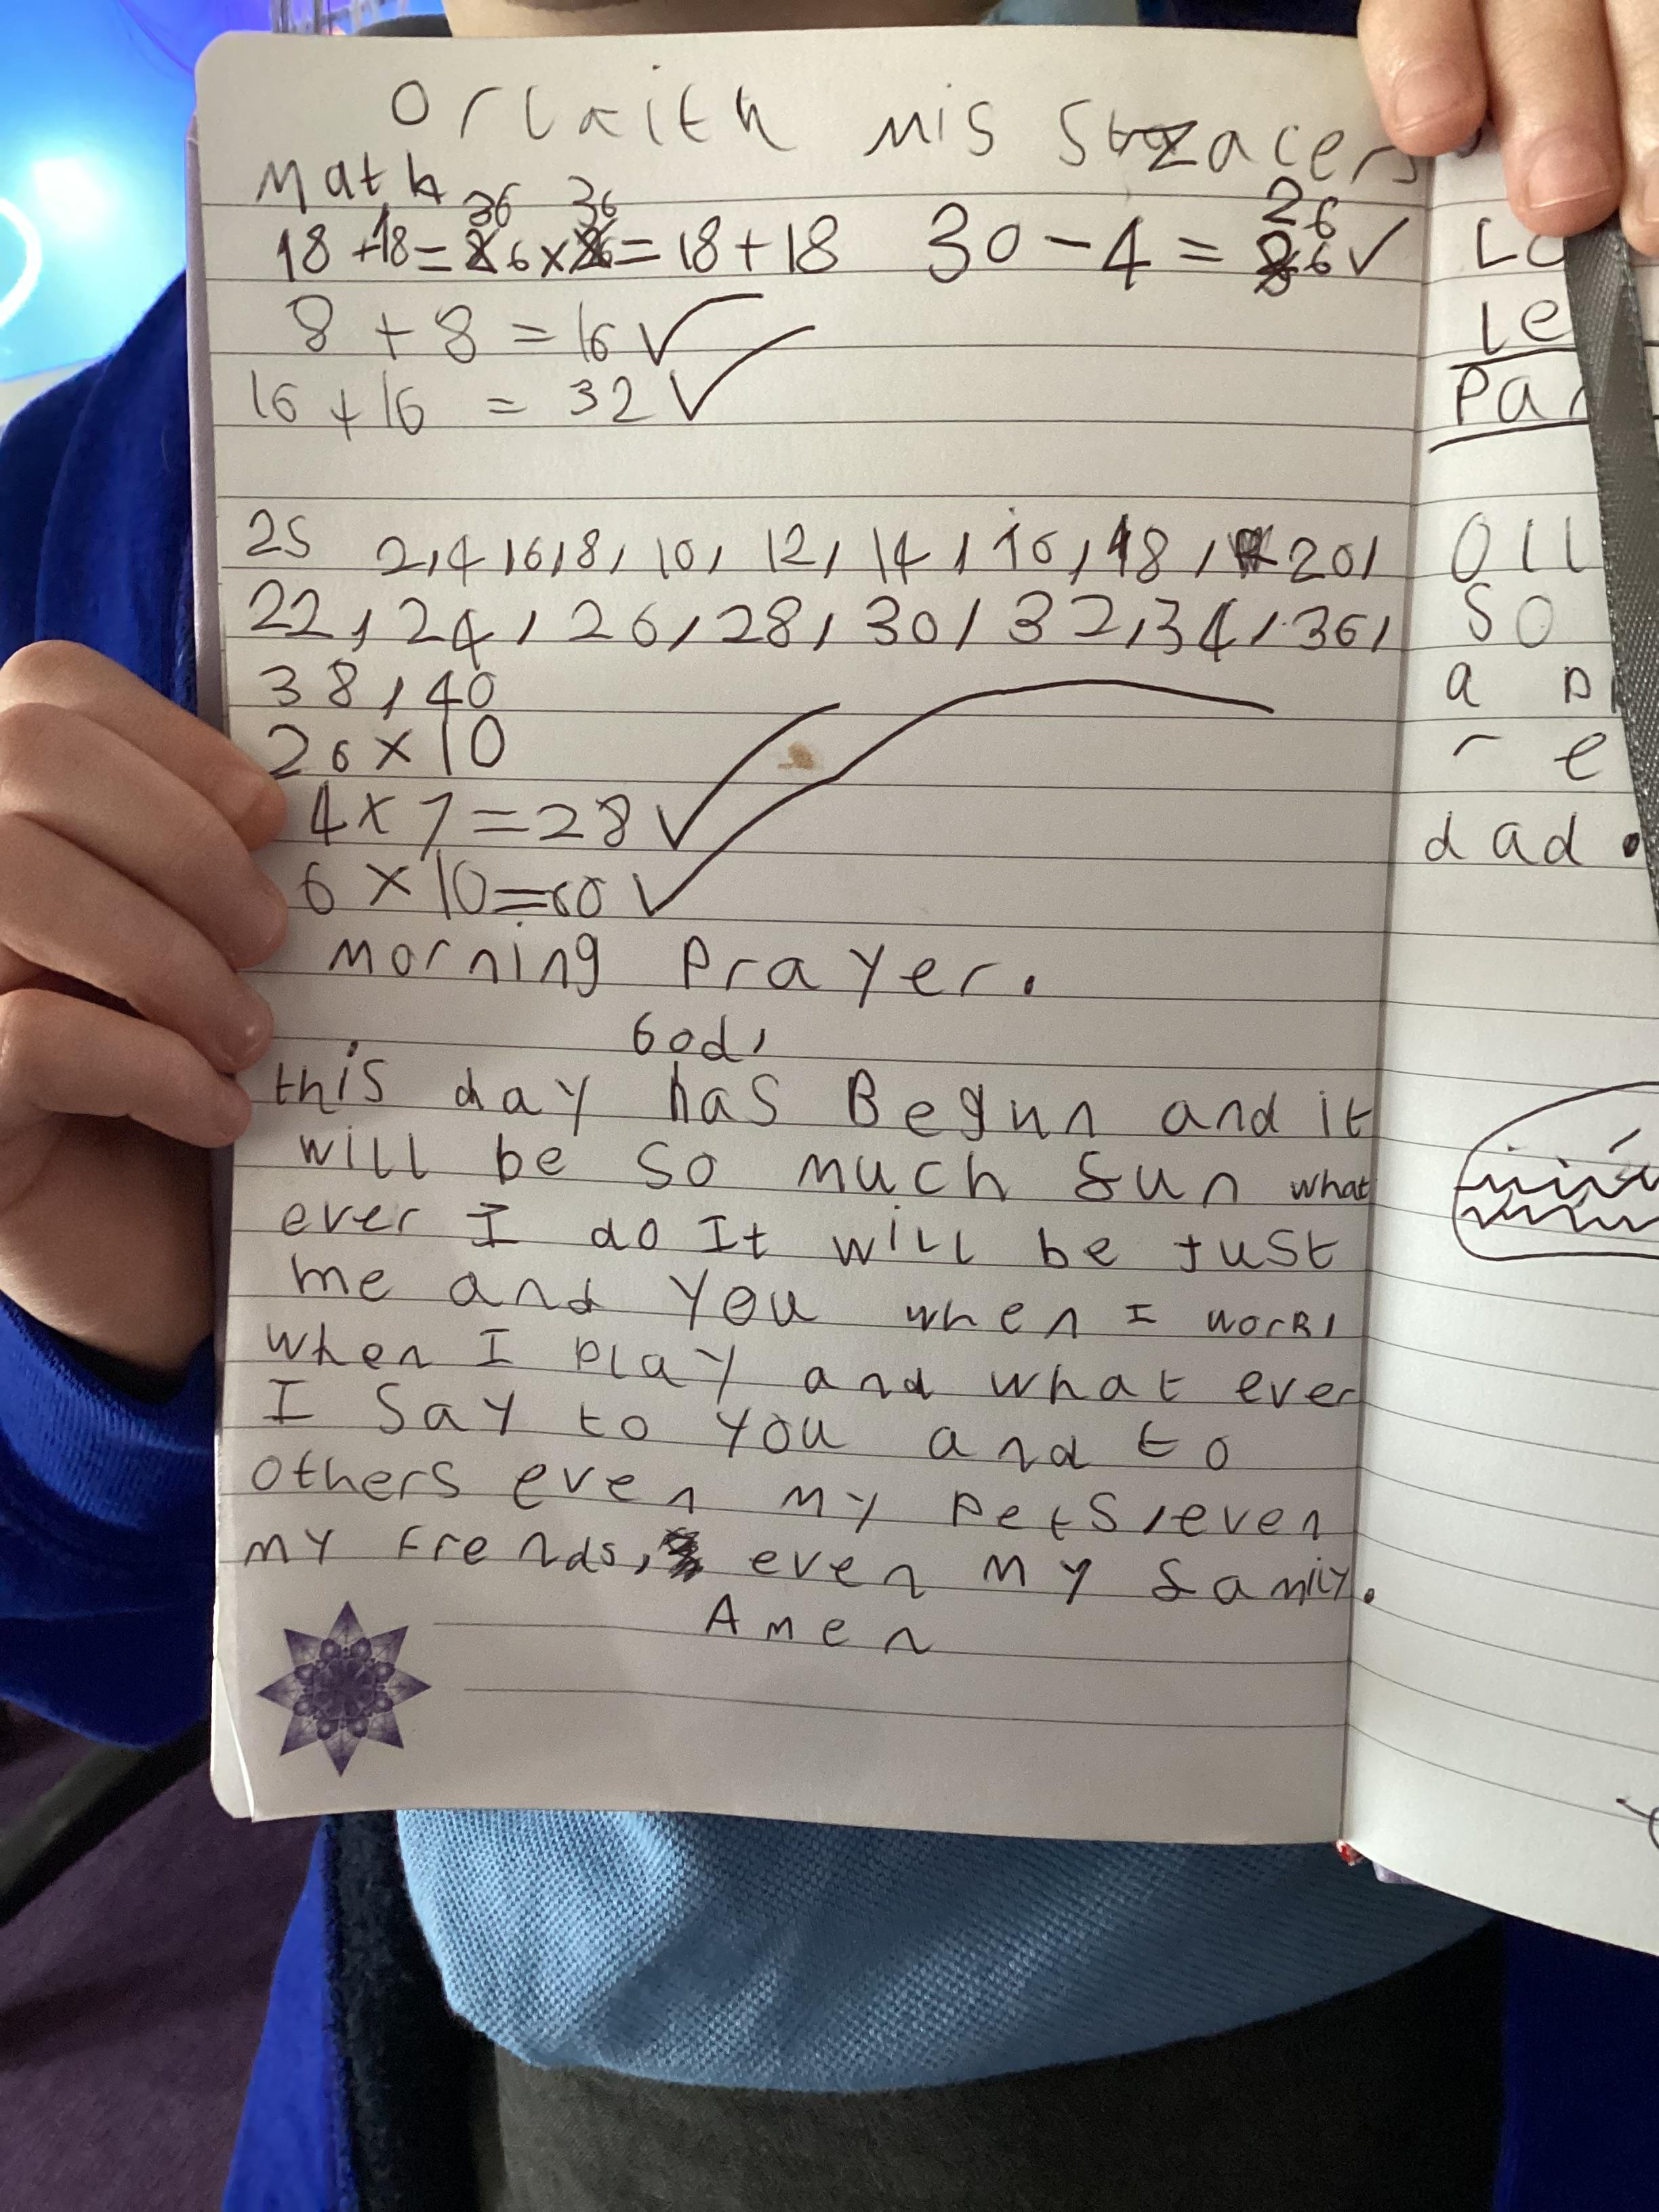 Orlaith mis
Math
36 36
18 + 18 = 26 x 26 = 18 + 18 30 - 4 = 26 ✓
8 + 8 = 16 ✓
16 + 16 = 32 ✓
2s 2, 4, 6, 8, 10, 12, 14, 16, 18, 20,
22, 24, 26, 28, 30, 32, 34, 36,
38, 40
26 x 10
4 x 7 = 28 ✓
6 x 10 = 60 ✓
Morning Prayer.
God,
this day has Begun and it
will be so much fun what
ever I do It will be Just
me and you when I work,
when I play and what ever
I Say to you and to
others even my pets, even
my frends, even my family.
Amen
so
a
dad.